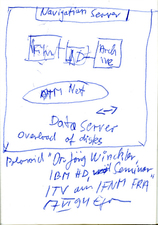 Navigation Server
Film
AD
Arch
ive
ATM Net
Data Server
overload of disks
Polaroid "Dr. Jörg Winckler,
IBM HD, Seminar"
ITV am IFNM FRA